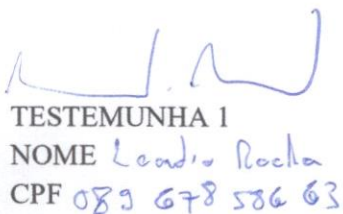 TESTEMUNHA 1
NOME Leandro Rocha
CPF 089 678 586 63